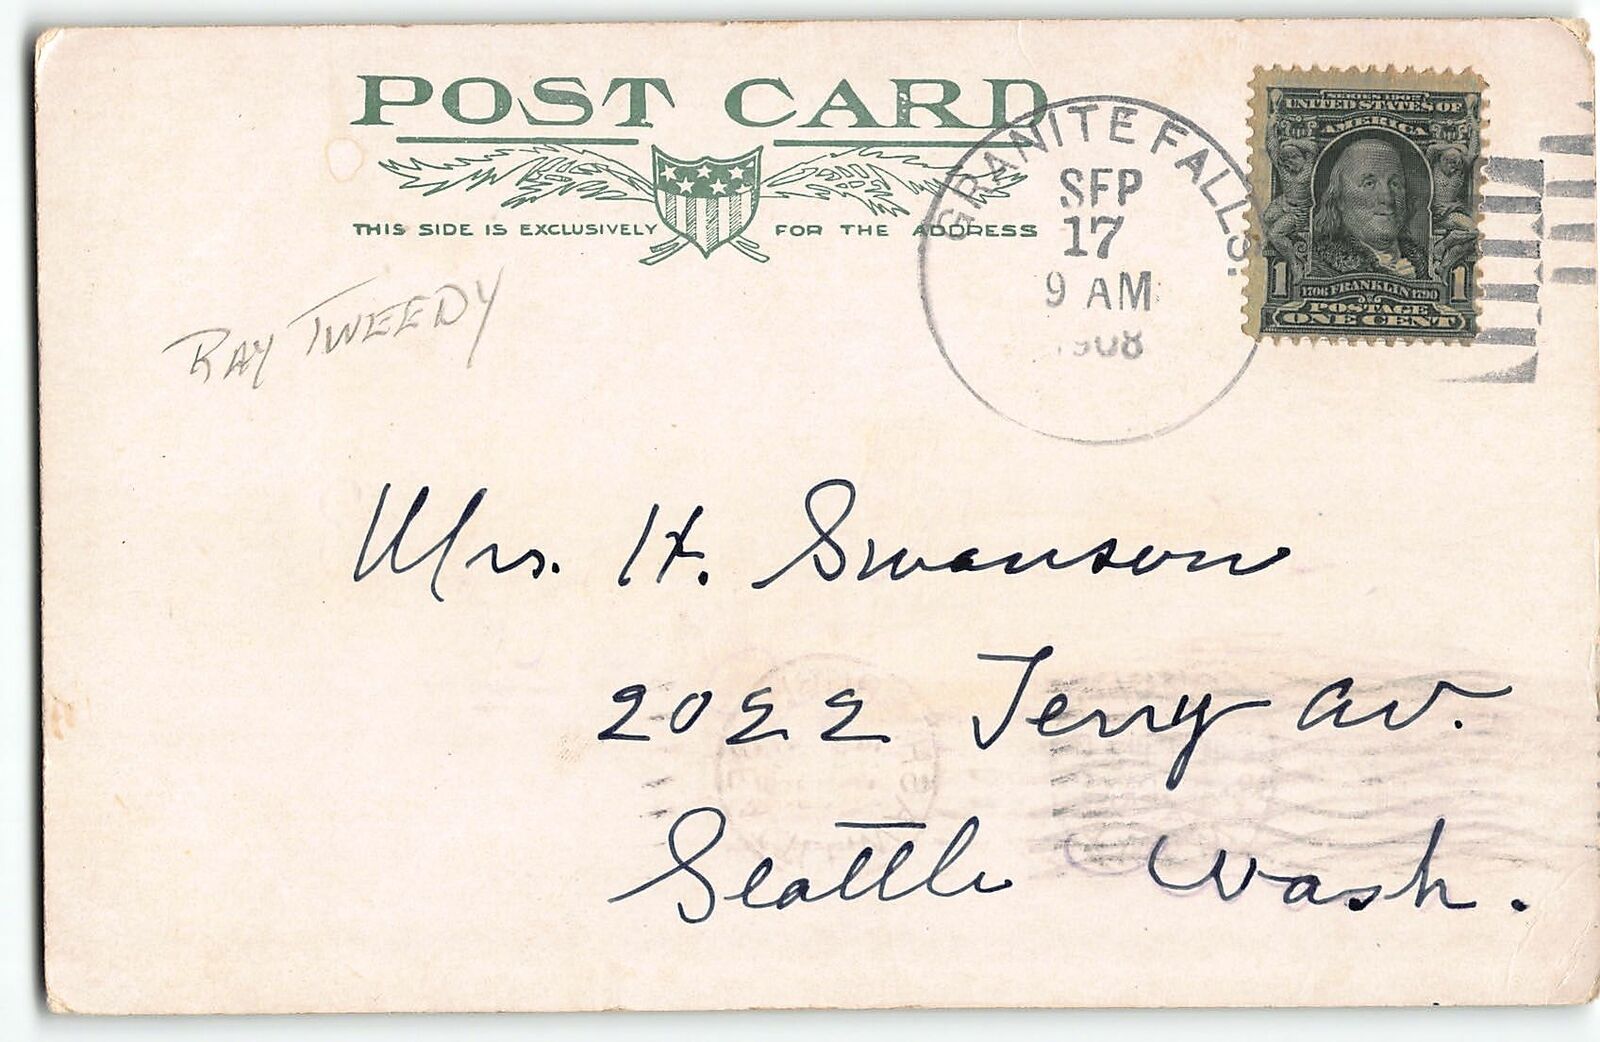 POST CARD
THIS SIDE IS EXCLUSIVELY FOR THE ADDRESS
GRANITE FALLS.
SEP
17
9 AM
1908
SERIES 1902
UNITED STATES OF
AMERICA
1 1706 FRANKLIN 1790 1
POSTAGE
ONE CENT
RAY TWEEDY
Mrs. H. Swanson
2022 Terry Av.
Seattle Wash.